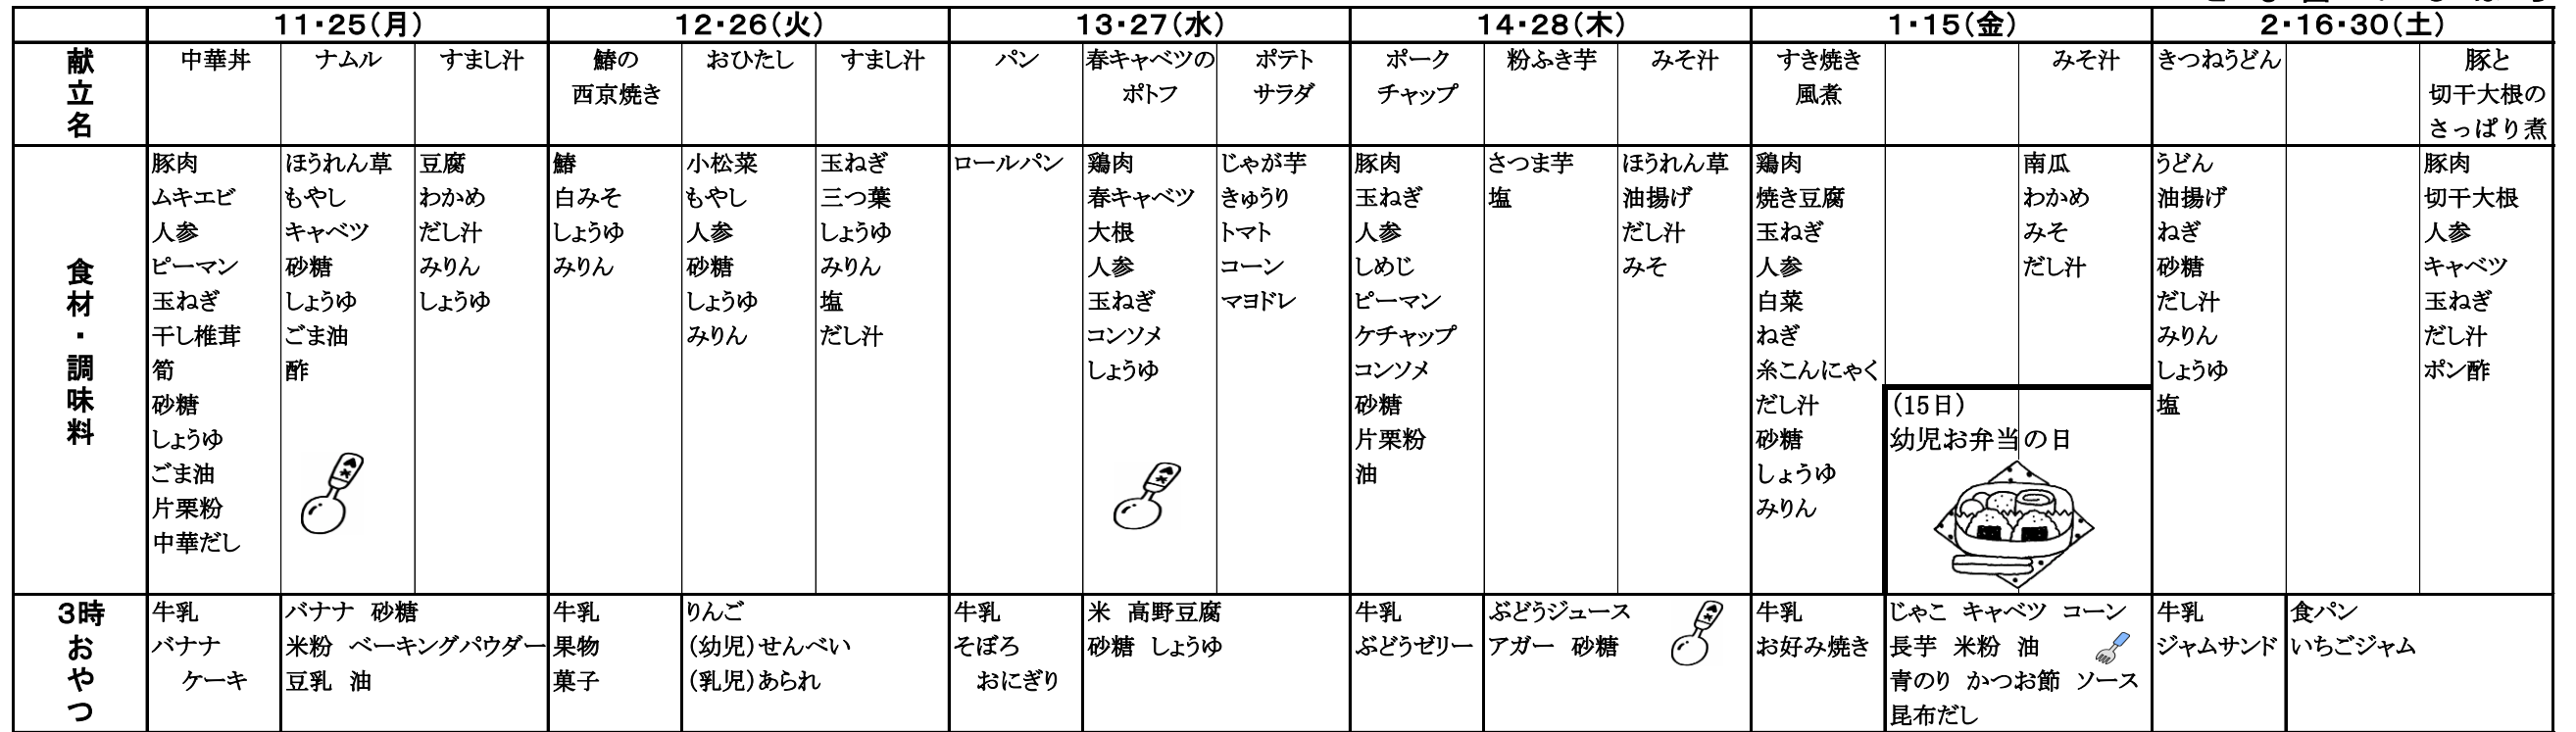 11・25(月) 12・26(火) 13・27(水) 14・28(木) 1・15(金) 2・16・30(土)
献立名
中華丼 ナムル すまし汁
鰆の
西京焼き
おひたし すまし汁
パン
春キャベツの
ポトフ
ポテト
サラダ
ポーク
チャップ
粉ふき芋 みそ汁
すき焼き
風煮
みそ汁
きつねうどん
豚と
切干大根の
さっぱり煮
食材・調味料
豚肉
ムキエビ
人参
ピーマン
玉ねぎ
干し椎茸
筍
砂糖
しょうゆ
ごま油
片栗粉
中華だし
ほうれん草
もやし
キャベツ
砂糖
しょうゆ
ごま油
酢
豆腐
わかめ
だし汁
みりん
しょうゆ
鰆
白みそ
しょうゆ
みりん
小松菜
もやし
人参
砂糖
しょうゆ
みりん
玉ねぎ
三つ葉
しょうゆ
みりん
塩
だし汁
ロールパン
鶏肉
春キャベツ
大根
人参
玉ねぎ
コンソメ
しょうゆ
じゃが芋
きゅうり
トマト
コーン
マヨドレ
豚肉
玉ねぎ
人参
しめじ
ピーマン
ケチャップ
コンソメ
砂糖
片栗粉
油
さつま芋
塩
ほうれん草
油揚げ
だし汁
みそ
鶏肉
焼き豆腐
玉ねぎ
人参
白菜
ねぎ
糸こんにゃく
だし汁
砂糖
しょうゆ
みりん
南瓜
わかめ
みそ
だし汁
(15日)
幼児お弁当の日
うどん
油揚げ
ねぎ
砂糖
だし汁
みりん
しょうゆ
塩
豚肉
切干大根
人参
キャベツ
玉ねぎ
だし汁
ポン酢
3時おやつ
牛乳
バナナ
ケーキ
バナナ 砂糖
米粉 ベーキングパウダー
豆乳 油
牛乳
果物
菓子
りんご
(幼児)せんべい
(乳児)あられ
牛乳
そぼろ
おにぎり
米 高野豆腐
砂糖 しょうゆ
牛乳
ぶどうゼリー
ぶどうジュース
アガー 砂糖
牛乳
お好み焼き
じゃこ キャベツ コーン
長芋 米粉 油
青のり かつお節 ソース
昆布だし
牛乳
ジャムサンド
食パン
いちごジャム